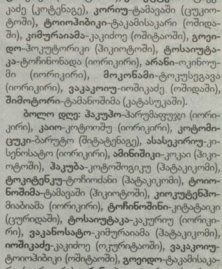 კაძე (კოტენაგე), კორიუ-ტამავაში (უკიოტო-
ში), ტოიოჰიბიკი-ტაკამისაკარი (ომიდა-
ში), კიმურაიამა-კაკიძოე (ომიტოში), გოეი-
დო-ჰოკუტორიკი (ჰიკიოტოში), ტოსაიუტა-
კა-ტოჩინონადა (იორიკირი), არანი-ოკინოუ-
მი (იორიკირი), მოკონამი-ტოკუსეგავა
(იორიკირი), ვაკაკოიუ-იოშიკაძე (ოშიდაში),
შიმოტორი-ტამანოშიმა (კატასუკაში).
ბოლო დღე: ჰაკუჰო-ჰარუმაფუჯი (იორი-
კირი), კაიო-კოტოოშუ (იორიკირი), კოტომი-
ცუკი-ბარუტო (შიტატენაგე), ასასეკირიუ-კი-
სენოსატო (იორიკირი), ამინიშიკი-კოკაი (ჰიკი-
ოტოში), ჰაკუბა-კოტოშოგიკუ (ჰატაკიკომი),
ტოკიტენკუ-ტოჩიოძანი (ჰატაკიკომი), ტოიო-
ნოშიმა-ტამავაში (ჰიკიოტოში), კიოკუტენჰო-
მიაბიამა (იორიკირი), ტოჩინოშინი-კიტატაიკი
(ცურიდაში), ტოსაიუტაკა-კაკურიუ (იორიკი-
რი), ვაკანოსატო-კიმურაიამა (ჰატაკიკომი),
იოშიკაძე-კაკიძოე (ოკურიტაოში), ვაკაკოიუ-
ტოიოჰიბიკი (ოშიტაოში), გოეიდო-ტაკამისაკა-